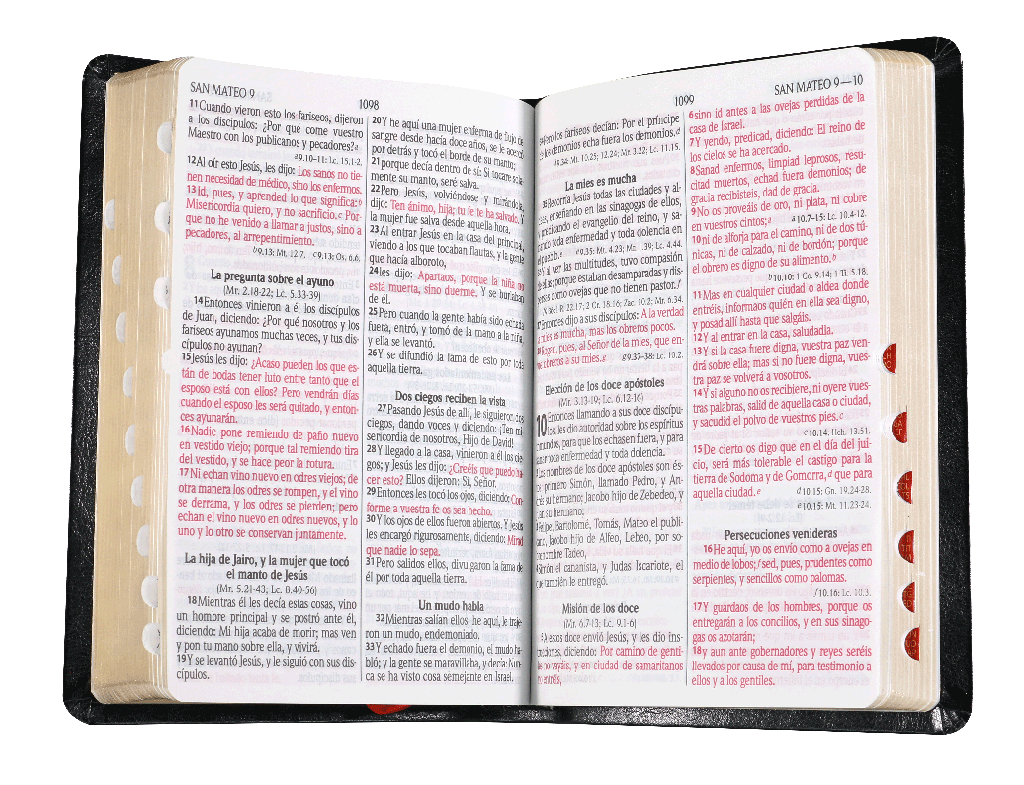 SAN MATEO 9
1098
11Cuando vieron esto los fariseos, dijeron
a los discípulos: ¿Por qué come vuestro
Maestro con los publicanos y pecadores?a
a9.10-11: Lc. 15.1-2.
12Al oír esto Jesús, les dijo: Los sanos no tie-
nen necesidad de médico, sino los enfermos.
13Id, pues, y aprended lo que significa:b
Misericordia quiero, y no sacrificio.c Por-
que no he venido a llamar a justos, sino a
pecadores, al arrepentimiento.
b9.13: Mt. 12.7. c9.13: Os. 6.6.
La pregunta sobre el ayuno
(Mr. 2.18-22; Lc. 5.33-39)
14Entonces vinieron a él los discípulos
de Juan, diciendo: ¿Por qué nosotros y los
fariseos ayunamos muchas veces, y tus dis-
cípulos no ayunan?
15Jesús les dijo: ¿Acaso pueden los que es-
tán de bodas tener luto entre tanto que el
esposo está con ellos? Pero vendrán días
cuando el esposo les será quitado, y enton-
ces ayunarán.
16Nadie pone remiendo de paño nuevo
en vestido viejo; porque tal remiendo tira
del vestido, y se hace peor la rotura.
17Ni echan vino nuevo en odres viejos; de
otra manera los odres se rompen, y el vino
se derrama, y los odres se pierden; pero
echan el vino nuevo en odres nuevos, y lo
uno y lo otro se conservan juntamente.
La hija de Jairo, y la mujer que tocó
el manto de Jesús
(Mr. 5.21-43; Lc. 8.40-56)
18Mientras él les decía estas cosas, vino
un hombre principal y se postró ante él,
diciendo: Mi hija acaba de morir; mas ven
y pon tu mano sobre ella, y vivirá.
19Y se levantó Jesús, y le siguió con sus dis-
cípulos.
20Y he aquí una mujer enferma de flujo de
sangre desde hacía doce años, se le acercó
por detrás y tocó el borde de su manto;
21porque decía dentro de sí: Si tocare sola-
mente su manto, seré salva.
22Pero Jesús, volviéndose y mirándola,
dijo: Ten ánimo, hija; tu fe te ha salvado. Y
la mujer fue salva desde aquella hora.
23Al entrar Jesús en la casa del principal,
viendo a los que tocaban flautas, y la gente
que hacía alboroto,
24les dijo: Apartaos, porque la niña no
está muerta, sino duerme. Y se burlaban
de él.
25Pero cuando la gente había sido echada
fuera, entró, y tomó de la mano a la niña,
y ella se levantó.
26Y se difundió la fama de esto por toda
aquella tierra.
Dos ciegos reciben la vista
27Pasando Jesús de allí, le siguieron dos
ciegos, dando voces y diciendo: ¡Ten mi-
sericordia de nosotros, Hijo de David!
28Y llegado a la casa, vinieron a él los cie-
gos; y Jesús les dijo: ¿Creéis que puedo ha-
cer esto? Ellos dijeron: Sí, Señor.
29Entonces les tocó los ojos, diciendo: Con-
forme a vuestra fe os sea hecho.
30Y los ojos de ellos fueron abiertos. Y Jesús
les encargó rigurosamente, diciendo: Mirad
que nadie lo sepa.
31Pero salidos ellos, divulgaron la fama de
él por toda aquella tierra.
Un mudo habla
32Mientras salían ellos, he aquí, le traje-
ron un mudo, endemoniado.
33Y echado fuera el demonio, el mudo ha-
bló; y la gente se maravillaba, y decía: Nun-
ca se ha visto cosa semejante en Israel.
1099
SAN MATEO 9—10
los fariseos decían: Por el príncipe
de los demonios echa fuera los demonios.d
9.34: Mt. 10.25; 12.24; Mr. 3.22; Lc. 11.15.
La mies es mucha
Recorría Jesús todas las ciudades y al-
enseñando en las sinagogas de ellos,
predicando el evangelio del reino, y sa-
toda enfermedad y toda dolencia en
el pueblo.e e9.35: Mt. 4.23; Mr. 1.39; Lc. 4.44.
al ver las multitudes, tuvo compasión
porque estaban desamparadas y dis-
como ovejas que no tienen pastor.f
R. 22.17; 2 Cr. 18.16; Zac. 10.2; Mr. 6.34.
Entonces dijo a sus discípulos: A la verdad
mies es mucha, mas los obreros pocos.
pues, al Señor de la mies, que en-
obreros a su mies.g g9.37-38: Lc. 10.2.
Elección de los doce apóstoles
(Mr. 3.13-19; Lc. 6.12-16)
10 Entonces llamando a sus doce discípu-
los, les dio autoridad sobre los espíritus
inmundos, para que los echasen fuera, y para
sanar toda enfermedad y toda dolencia.
Los nombres de los doce apóstoles son és-
primero Simón, llamado Pedro, y An-
su hermano; Jacobo hijo de Zebedeo, y
Juan su hermano;
Felipe, Bartolomé, Tomás, Mateo el publi-
Jacobo hijo de Alfeo, Lebeo, por so-
brenombre Tadeo,
Simón el cananista, y Judas Iscariote, el
que también le entregó.
Misión de los doce
(Mr. 6.7-13; Lc. 9.1-6)
A esos doce envió Jesús, y les dio ins-
diciendo: Por camino de genti-
no vayáis, y en ciudad de samaritanos
no entréis,
6sino id antes a las ovejas perdidas de la
casa de Israel.
7Y yendo, predicad, diciendo: El reino de
los cielos se ha acercado.
8Sanad enfermos, limpiad leprosos, resu-
citad muertos, echad fuera demonios; de
gracia recibisteis, dad de gracia.
9No os proveáis de oro, ni plata, ni cobre
en vuestros cintos;a a10.7-15: Lc. 10.4-12.
10ni de alforja para el camino, ni de dos tú-
nicas, ni de calzado, ni de bordón; porque
el obrero es digno de su alimento.b
b10.10: 1 Co. 9.14; 1 Ti. 5.18.
11Mas en cualquier ciudad o aldea donde
entréis, informaos quién en ella sea digno,
y posad allí hasta que salgáis.
12Y al entrar en la casa, saludadla.
13Y si la casa fuere digna, vuestra paz ven-
drá sobre ella; mas si no fuere digna, vues-
tra paz se volverá a vosotros.
14Y si alguno no os recibiere, ni oyere vues-
tras palabras, salid de aquella casa o ciudad,
y sacudid el polvo de vuestros pies.c
c10.14: Hch. 13.51.
15De cierto os digo que en el día del jui-
cio, será más tolerable el castigo para la
tierra de Sodoma y de Gomorra,d que para
aquella ciudad.e d10.15: Gn. 19.24-28.
e10.15: Mt. 11.23-24.
Persecuciones venideras
16He aquí, yo os envío como a ovejas en
medio de lobos;f sed, pues, prudentes como
serpientes, y sencillos como palomas.
f10.16: Lc. 10.3.
17Y guardaos de los hombres, porque os
entregarán a los concilios, y en sus sinago-
gas os azotarán;
18y aun ante gobernadores y reyes seréis
llevados por causa de mí, para testimonio a
ellos y a los gentiles.